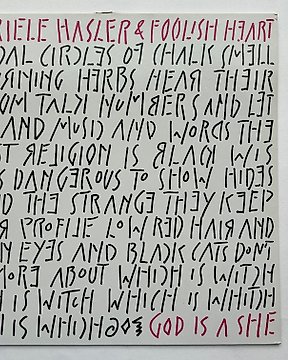 RIELE HASLER & FOOLISH HEART
DAL CIRCLES OF CHALK SMELL
RINING HERBS HEAR THEIR
OM TALK NUMBERS AND LET
AND MUSIC AND WORDS THE
ST RELIGION IS BLACK WIS
S DANGEROUS TO SHOW HIDES
D THE STRANGE THEY KEEP
R PROFILE LOW RED HAIR AND
N EYES AND BLACK CATS DON'T
MORE ABOUT WHICH IS WITCH
H IS WITCH WHICH IS WHITCH
H IS WHICH GOD IS A SHE